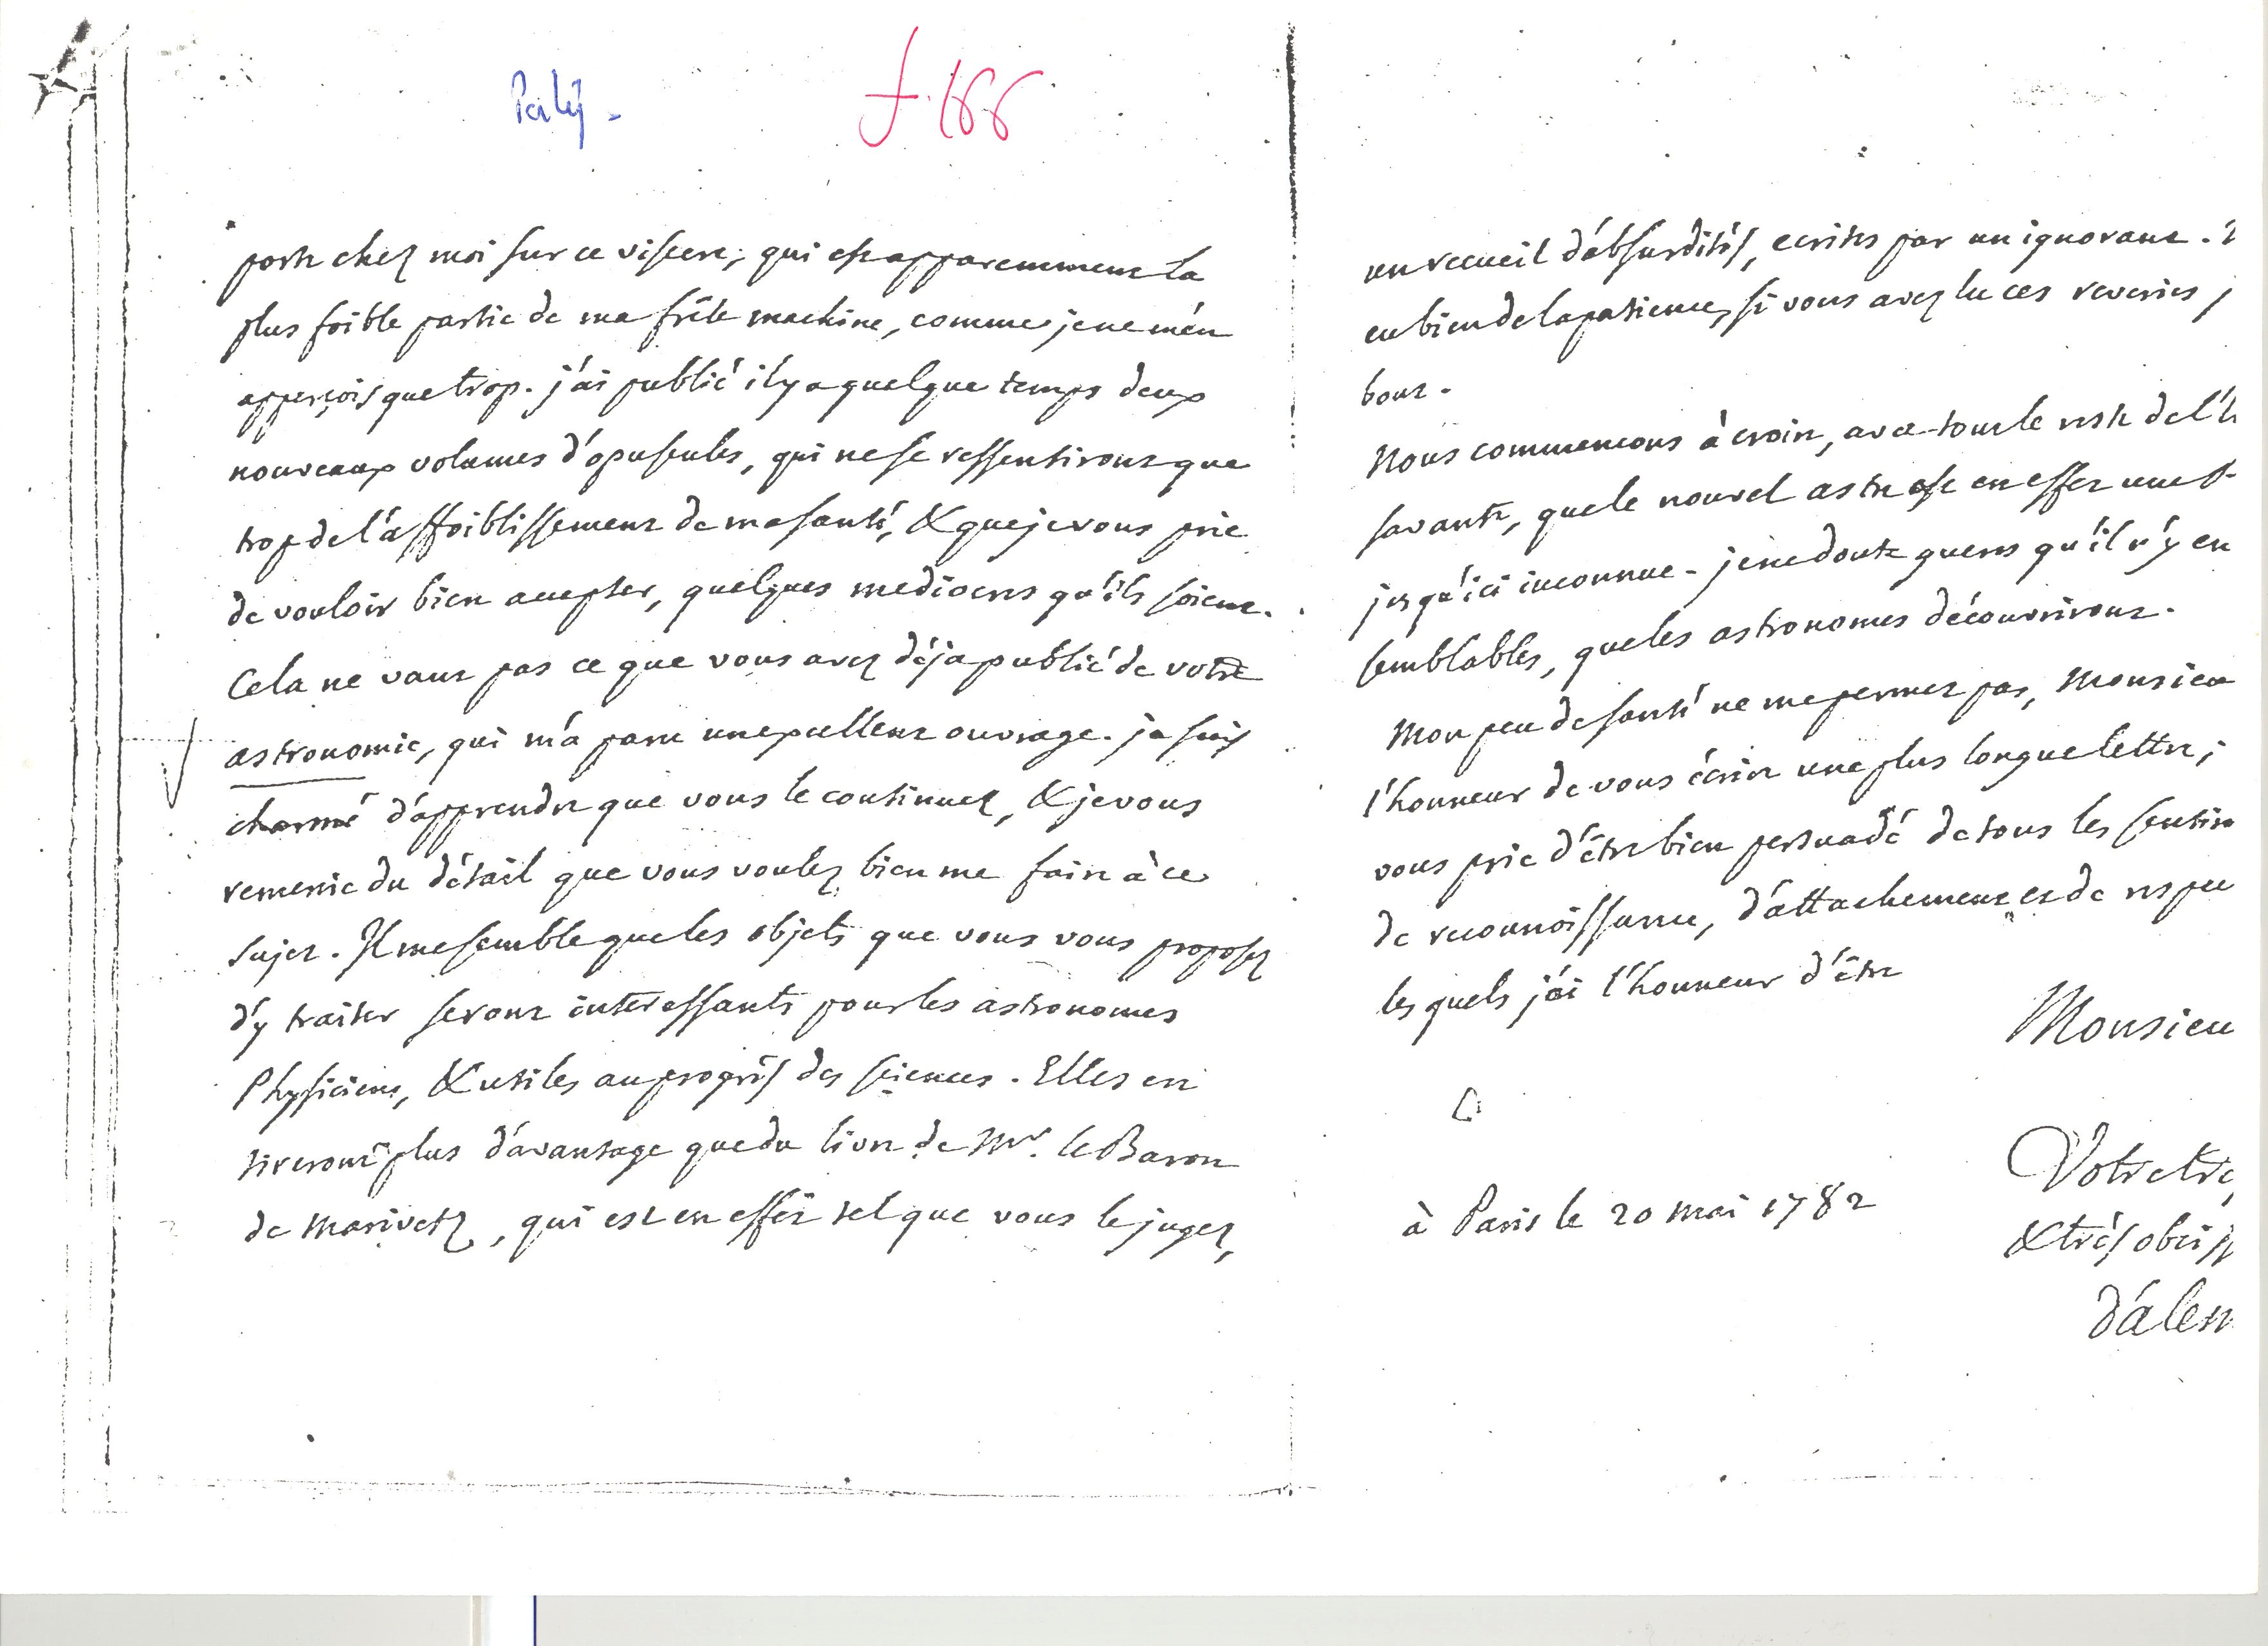 f. 166
porte chez moi sur ce viscere, qui est apparemment la
plus foible partie de ma frêle machine, comme je ne m'en
apperçois que trop. j'ai publié il y a quelque temps deux
nouveaux volumes d'opuscules, qui ne se ressentiront que
trop de l'affoiblissement de ma santé, & que je vous prie
de vouloir bien accepter, quelques mediocres qu'ils soient.
Cela ne vaut pas ce que vous avez déja publié de votre
astronomie, qui m'a paru un excellent ouvrage. je suis
charmé d'apprendre que vous le continuez, & je vous
remercie du détail que vous voulez bien me faire à ce
sujet. Il me semble que les objets que vous vous proposez
d'y traiter seront interessants pour les astronomes
Physiciens, & utiles au progrès des sciences. Elles en
tireront plus d'avantage que du livre de Mr. le Baron
de Marivetz, qui est en effet tel que vous le jugez,
un recueil d'absurdités, ecrites par un ignorant.
eu bien de la patience, si vous avez lu ces reveries j
bout.
Nous commencons à croire, avec tout le reste de l'
savante, que le nouvel astre est en effet une
jusqu'ici inconnue. je ne doute gueres qu'il n'y en
semblables, que les astronomes découvriront.
Mon peu de santé ne me permet pas, Monsieu
l'honneur de vous écrire une plus longue lettre;
vous prie d'être bien persuadé de tous les sentim
de reconnoissance, d'attachement et de respec
les quels j'ai l'honneur d'être
Monsieu
Votre trè
à Paris le 20 mai 1782
& très obeiss
d'alem